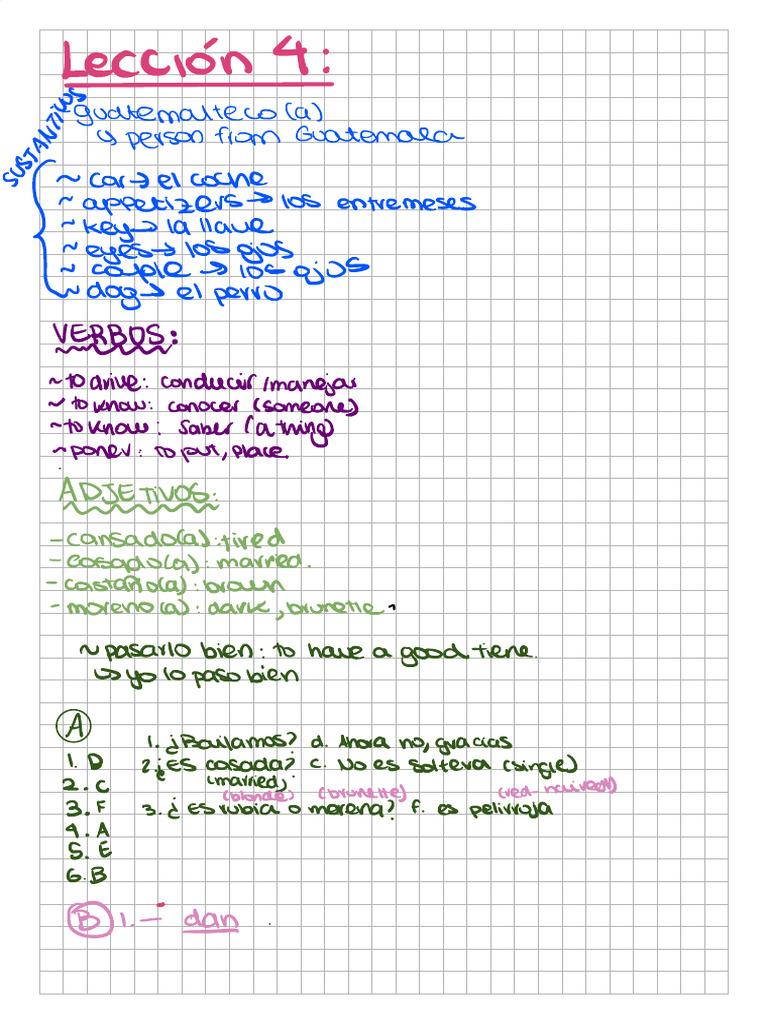 Lección 4:
SUSTANTIVOS
~guatemalteco(a)
↳ person from Guatemala
~ car → el coche
~ appetizers → los entremeses
~ key → la llave
~ eyes → los ojos
~ couple → los ojos
~ dog → el perro
VERBOS:
~to drive: conducir/manejar
~ to know: conocer (someone)
~to know: saber (a thing)
~poner: to put, place.
ADJETIVOS:
-cansado(a): tired
-casado(a): married.
-castaño(a): brown
-moreno(a): dark, brunette.
~pasarlo bien: to have a good tiene.
↳ yo lo paso bien
A
1. ¿Bailamos? d. Ahora no, gracias
1. D
2. ¿Es casada? c. No es soltera (single)
(married)
2. C
(blonde) (brunette) (red-haired)
3. F
3. ¿Es rubia o morena? f. es pelirroja
4. A
5. E
6. B
B 1.- dan